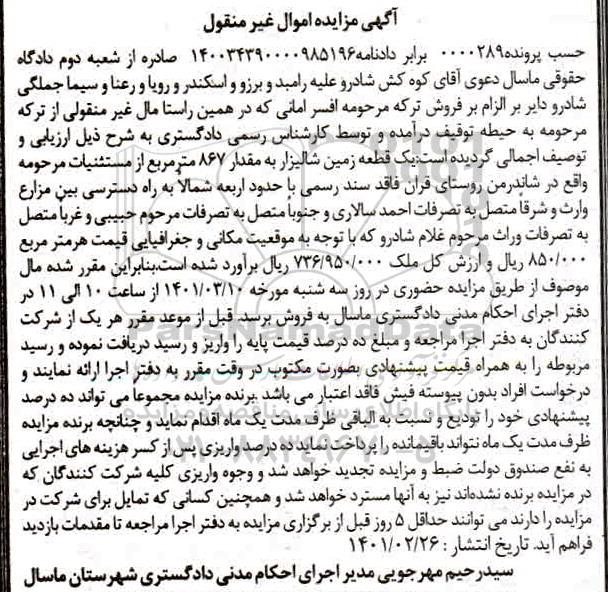 آگهی مزایده اموال غیر منقول
حسب پرونده۰۰۰۰۲۸۹ برابر دادنامه۱۴۰۰۳۴۳۹۰۰۰۰۹۸۵۱۹۶ صادره از شعبه دوم دادگاه
حقوقی ماسال دعوی آقای کوه کش شادرو علیه رامبد و برزو و اسکندر و رویا و رعنا و سیما جملگی
شادرو دایر بر الزام بر فروش ترکه مرحومه افسر امانی که در همین راستا مال غیر منقولی از ترکه
مرحومه به حیطه توقیف درآمده و توسط کارشناس رسمی دادگستری به شرح ذیل ارزیابی و
توصیف اجمالی گردیده است:یک قطعه زمین شالیزار به مقدار ۸۶۷ مترمربع از مستثنیات مرحومه
واقع در شاندرمن روستای قران فاقد سند رسمی با حدود اربعه شمالاً به راه دسترسی بین مزارع
وارث و شرقا متصل به تصرفات احمد سالاری و جنوباً متصل به تصرفات مرحوم حبیبی و غرباً متصل
به تصرفات وراث مرحوم غلام شادرو که با توجه به موقعیت مکانی و جغرافیایی قیمت هرمتر مربع
۸۵۰/۰۰۰ ریال و ارزش کل ملک ۷۳۶/۹۵۰/۰۰۰ ریال برآورد شده است.بنابراین مقرر شده مال
موصوف از طریق مزایده حضوری در روز سه شنبه مورخه ۱۴۰۱/۰۳/۱۰ از ساعت ۱۰ الی ۱۱ در
دفتر اجرای احکام مدنی دادگستری ماسال به فروش برسد. قبل از موعد مقرر هر یک از شرکت
کنندگان به دفتر اجرا مراجعه و مبلغ ده درصد قیمت پایه را واریز و رسید دریافت نموده و رسید
مربوطه را به همراه قیمت پیشنهادی بصورت مکتوب در وقت مقرر به دفتر اجرا ارائه نمایند و
درخواست افراد بدون پیوسته فیش فاقد اعتبار می باشد .برنده مزایده مجموعاً می تواند ده درصد
پیشنهادی خود را تودیع و نسبت به الباقی ظرف مدت یک ماه اقدام نماید و چنانچه برنده مزایده
ظرف مدت یک ماه نتواند باقیمانده را پرداخت نماید ده درصد واریزی پس از کسر هزینه های اجرایی
به نفع صندوق دولت ضبط و مزایده تجدید خواهد شد و وجوه واریزی کلیه شرکت کنندگان که
در مزایده برنده نشده‌اند نیز به آنها مسترد خواهد شد و همچنین کسانی که تمایل برای شرکت در
مزایده را دارند می توانند حداقل ۵ روز قبل از برگزاری مزایده به دفتر اجرا مراجعه تا مقدمات بازدید
فراهم آید. تاریخ انتشار : ۱۴۰۱/۰۲/۲۶
سیدرحیم مهرجویی مدیر اجرای احکام مدنی دادگستری شهرستان ماسال